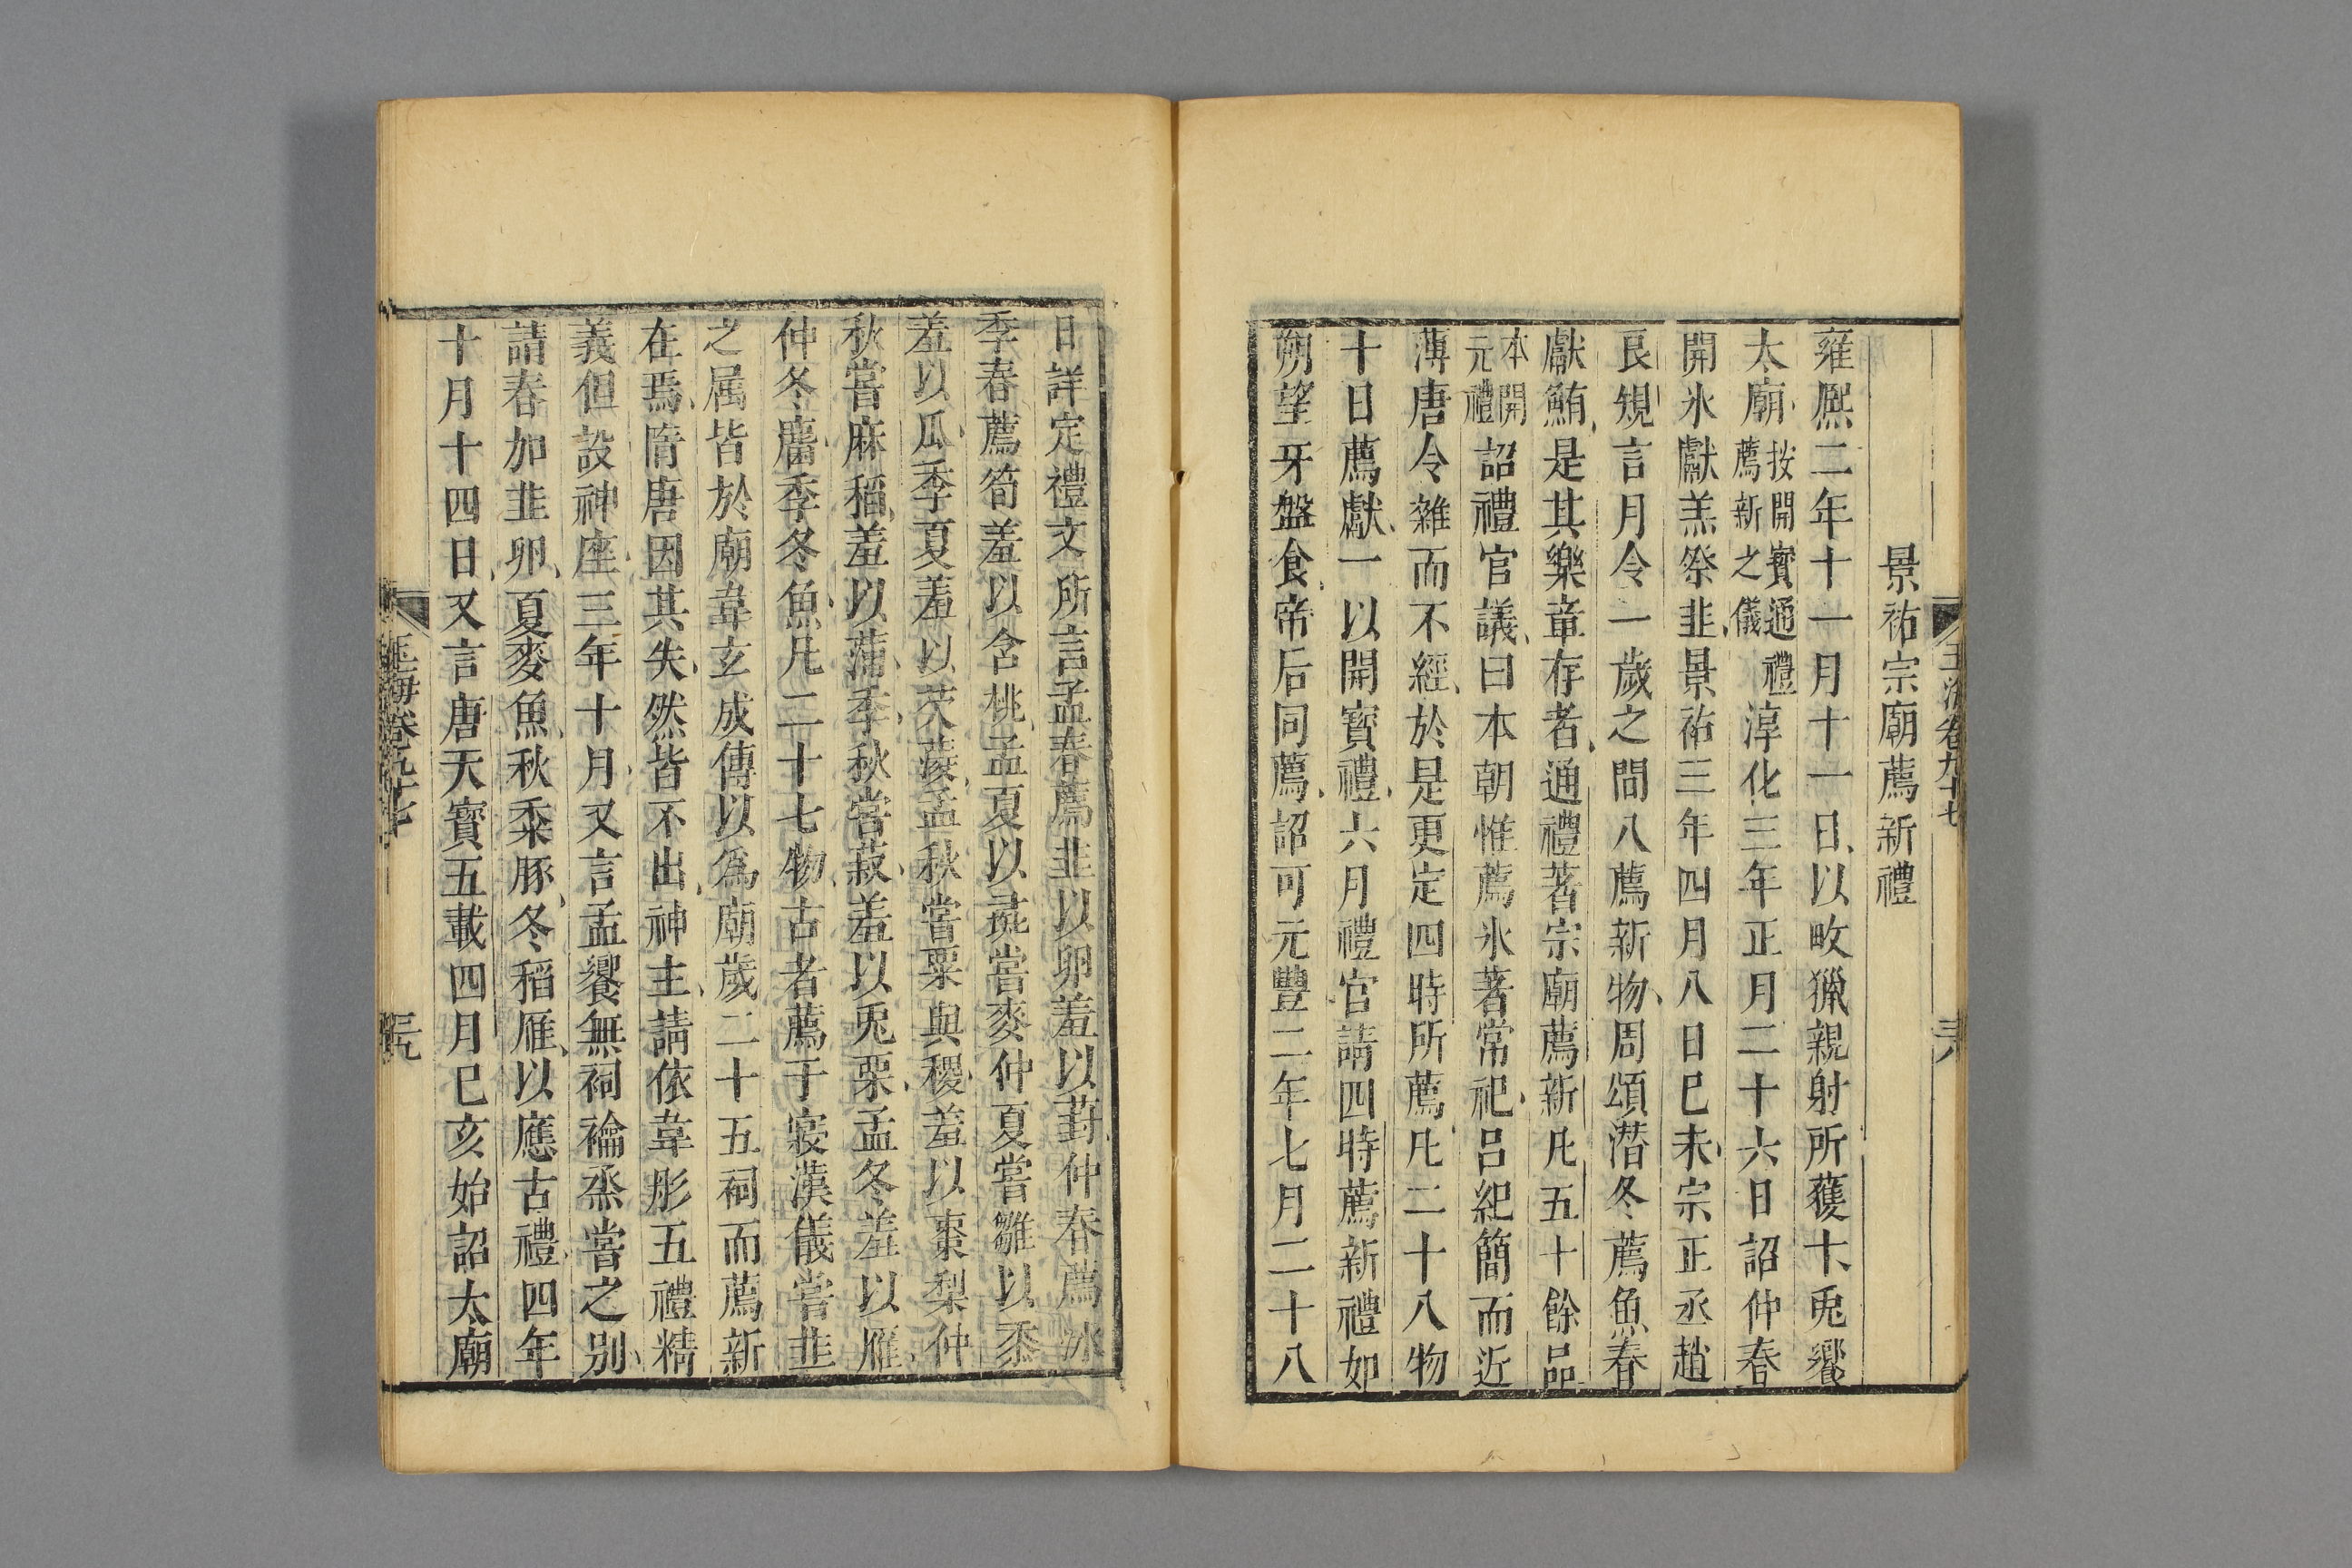 景祐宗廟薦新禮
雍熈二年十一月十一日以畋獵親射所獲十兎饗
太廟按開寳通禮薦新之儀淳化三年正月二十六日詔仲春
開氷獻羔祭韭景祐三年四月八日巳未宗正丞趙
良規言月令一歲之間八薦新物周頌潜冬薦魚春
獻鮪是其樂章存者通禮著宗廟薦新凡五十餘品
本開元禮詔禮官議曰本朝惟薦氷著常祀吕紀簡而近
薄唐令雜而不經於是更定四時所薦凡二十八物
十日薦獻一以開寳禮六月禮官請四時薦新禮如
朔望牙盤食帝后同薦詔可元豐二年七月二十八
玉海卷九十七
日詳定禮文所言孟春薦韭以卵羞以葑仲春薦冰
季春薦筍羞以含桃孟夏以彘嘗麥仲夏嘗雛以黍
羞以瓜季夏羞以芡蔆孟秋嘗粟與稷羞以棗梨仲
秋嘗麻稻羞以蒲季秋嘗菽羞以兎栗孟冬羞以雁
仲冬麕季冬魚凡二十七物古者薦于寝漢儀嘗韭
之属皆於廟韋玄成傳以為廟歲二十五祠而薦新
在焉隋唐因其失然皆不出神主請依韋彤五禮精
義但設神座三年十月又言孟饗無祠禴烝嘗之别
請春加韭卵夏麥魚秋黍豚冬稻雁以應古禮四年
十月十四日又言唐天寳五載四月巳亥始詔太廟
玉海卷九十七